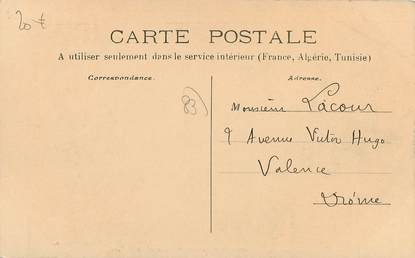 20 €
CARTE POSTALE
A utiliser seulement dans le service intérieur (France, Algérie, Tunisie)
Correspondance.
Adresse.
83)
Monsieur Lacour
9 Avenue Victor Hugo
Valence
Drôme